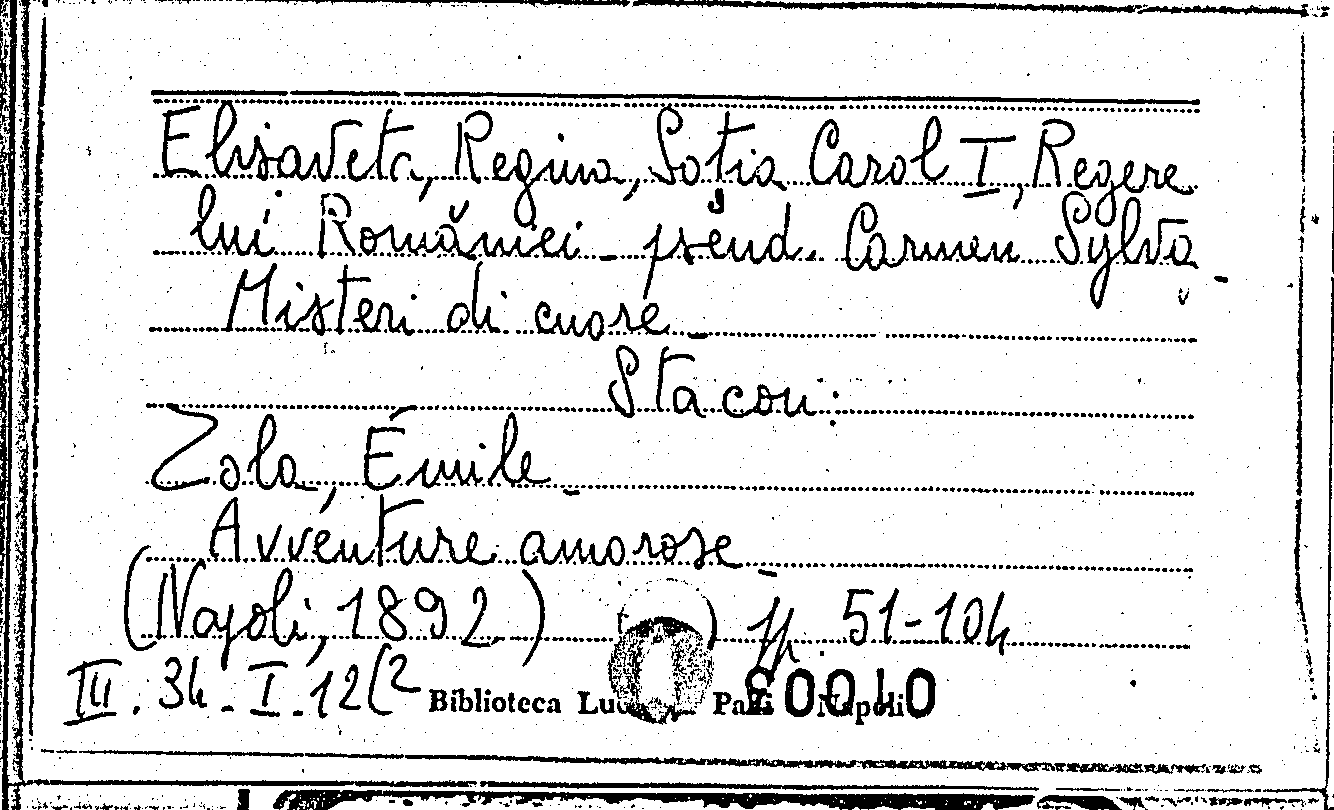 Elisaveta, Regina, Soţia Carol I, Regere
lui României - pseud. Carmen Sylva -
Misteri di cuore -
Sta con:
Zola, Émile -
Avventure amorose -
(Napoli, 1892) pp. 51-104
III. 34 - I - 12(2
Biblioteca Palli Napoli